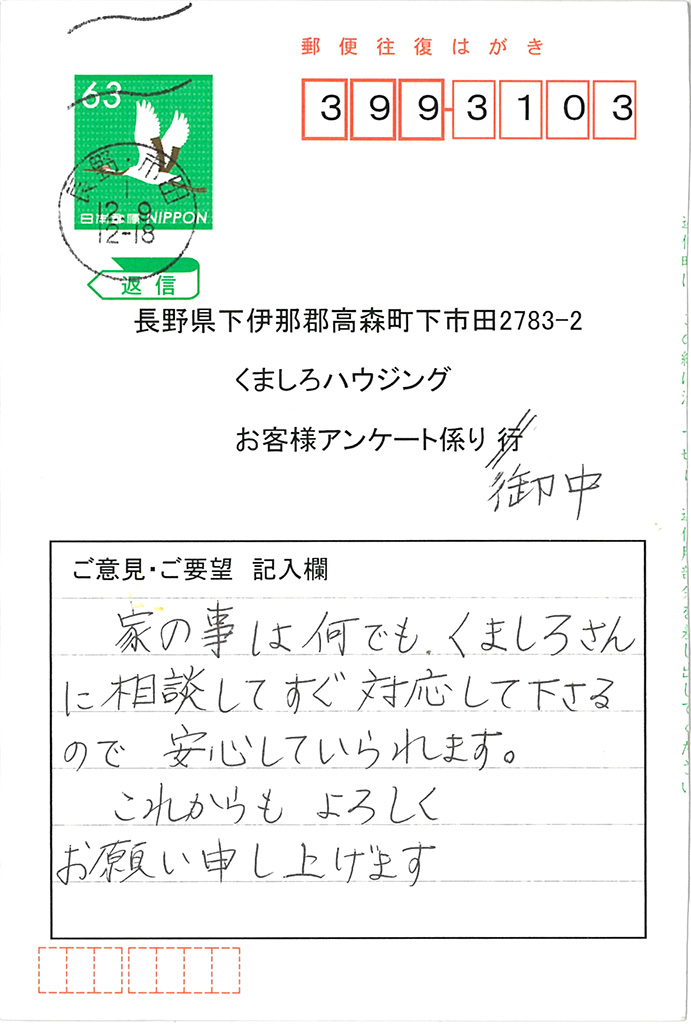 郵便往復はがき
63
399-3103
長野・市田
1
12.9
12-18
日本郵便 NIPPON
返信
長野県下伊那郡高森町下市田2783-2
くましろハウジング
お客様アンケート係り 行
御中
ご意見・ご要望 記入欄
家の事は何でも、くましろさん
に相談してすぐ対応して下さる
ので 安心していられます。
これからも よろしく
お願い申し上げます